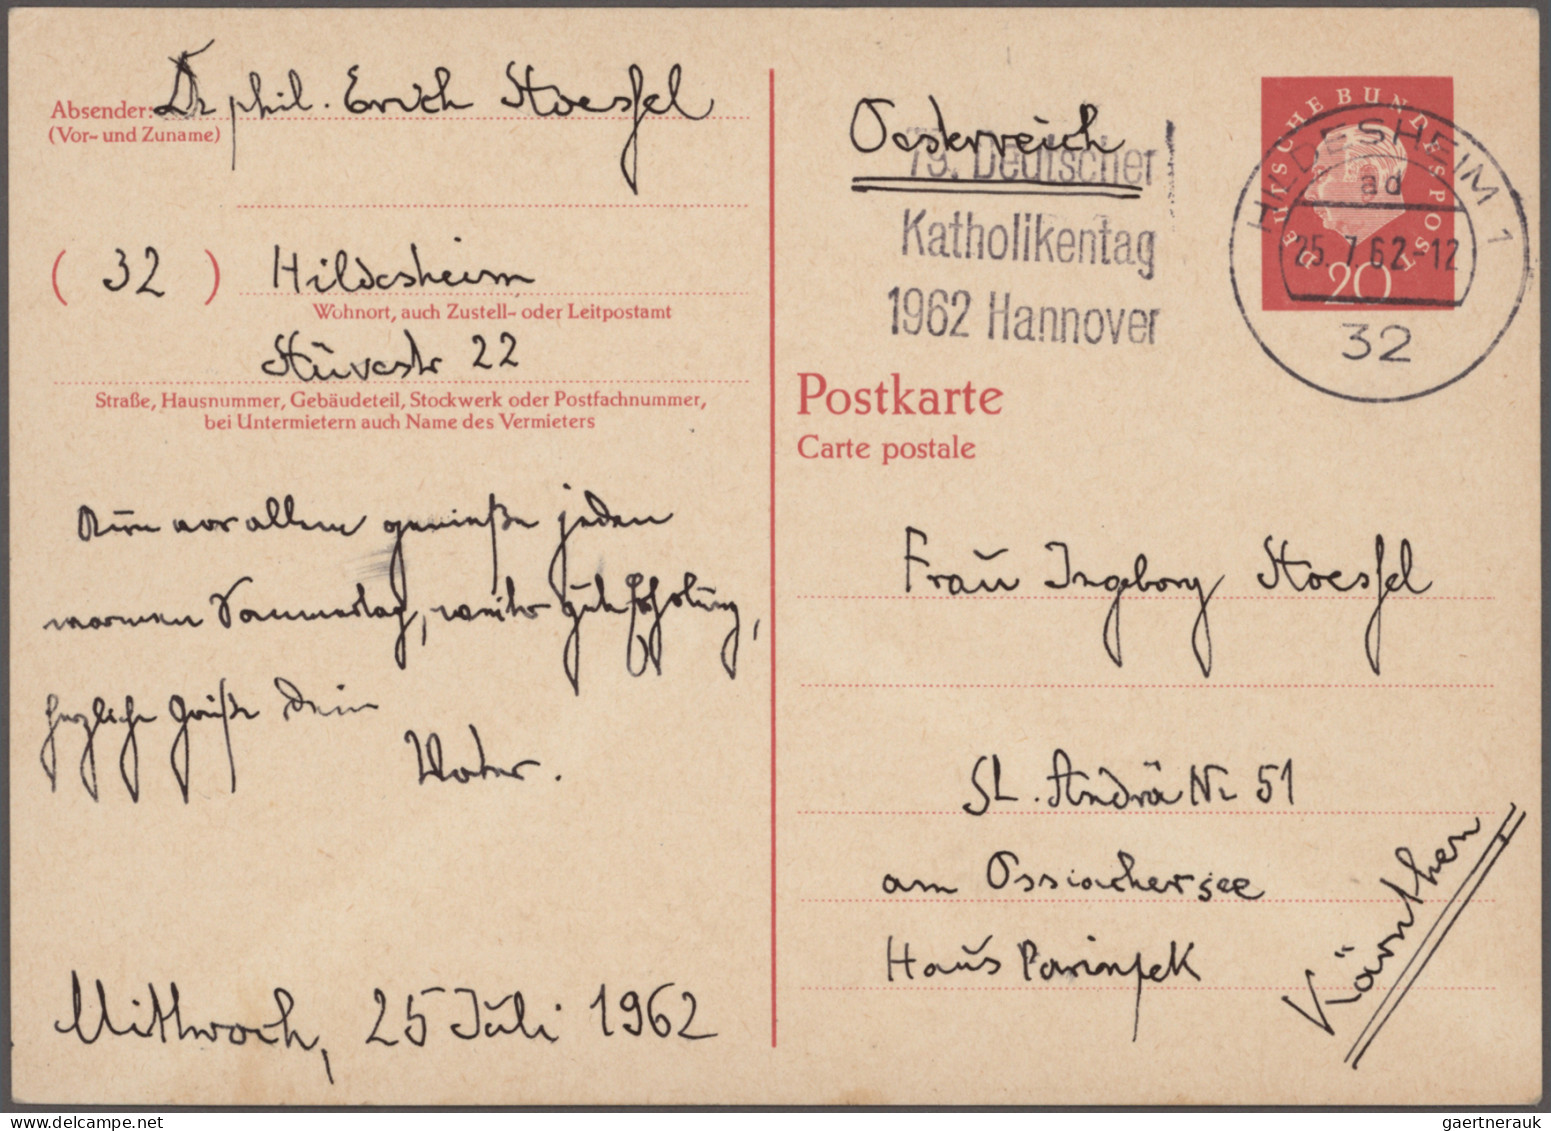 Absender: Dr phil. Erich Stoessel
(Vor- und Zuname)
( 32 ) Hildesheim
Wohnort, auch Zustell- oder Leitpostamt
Stüvestr 22
Straße, Hausnummer, Gebäudeteil, Stockwerk oder Postfachnummer,
bei Untermietern auch Name des Vermieters
Nun vor allem genieße jeden
warmen Sommertag, weiter gute Erholung,
herzliche Grüße Dein
Vater.
Mittwoch, 25 Juli 1962
Oesterreich
79. Deutscher
Katholikentag
1962 Hannover
DEUTSCHE BUNDESPOST
20
HILDESHEIM 1
ad
25.7.62-12
32
Postkarte
Carte postale
Frau Ingeborg Stoessel
St. Andrä Nr 51
am Ossiachersee
Haus
Kärnthen
gaertnerauk